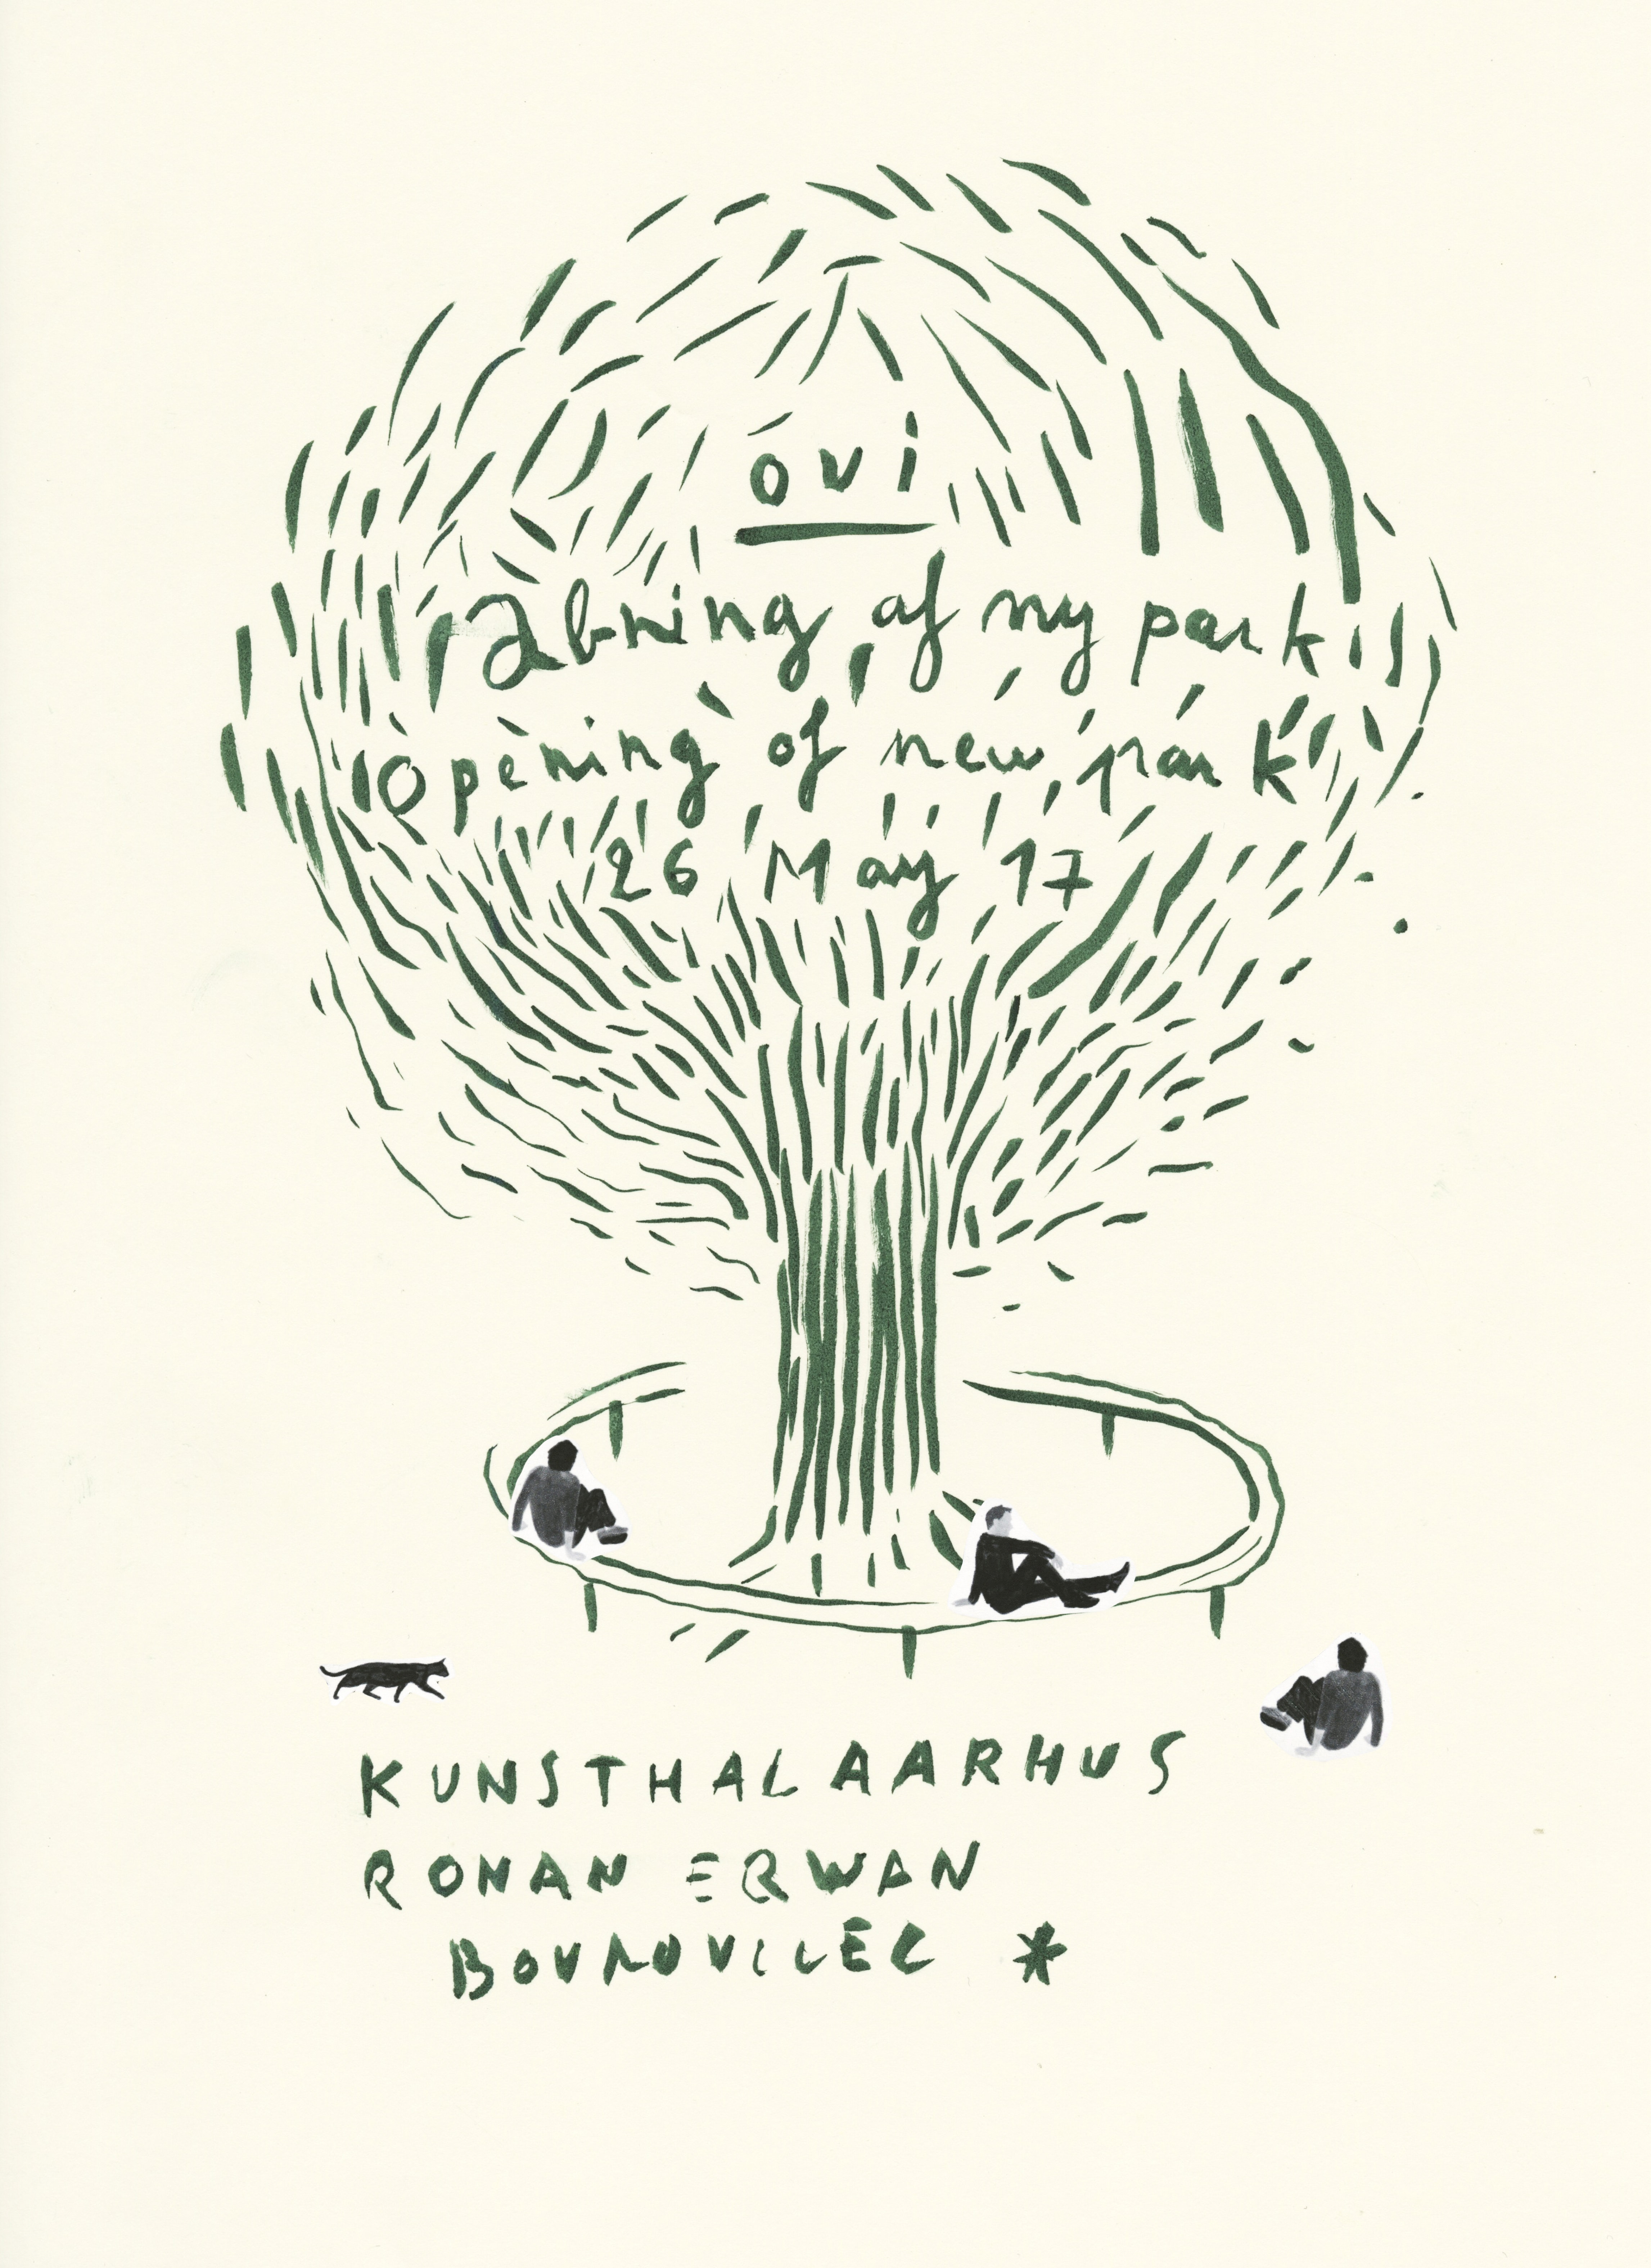 oui
Åbning af ny park
Opening of new park
26 May 17
KUNSTHAL AARHUS
RONAN ERWAN
BOUROULLEC *